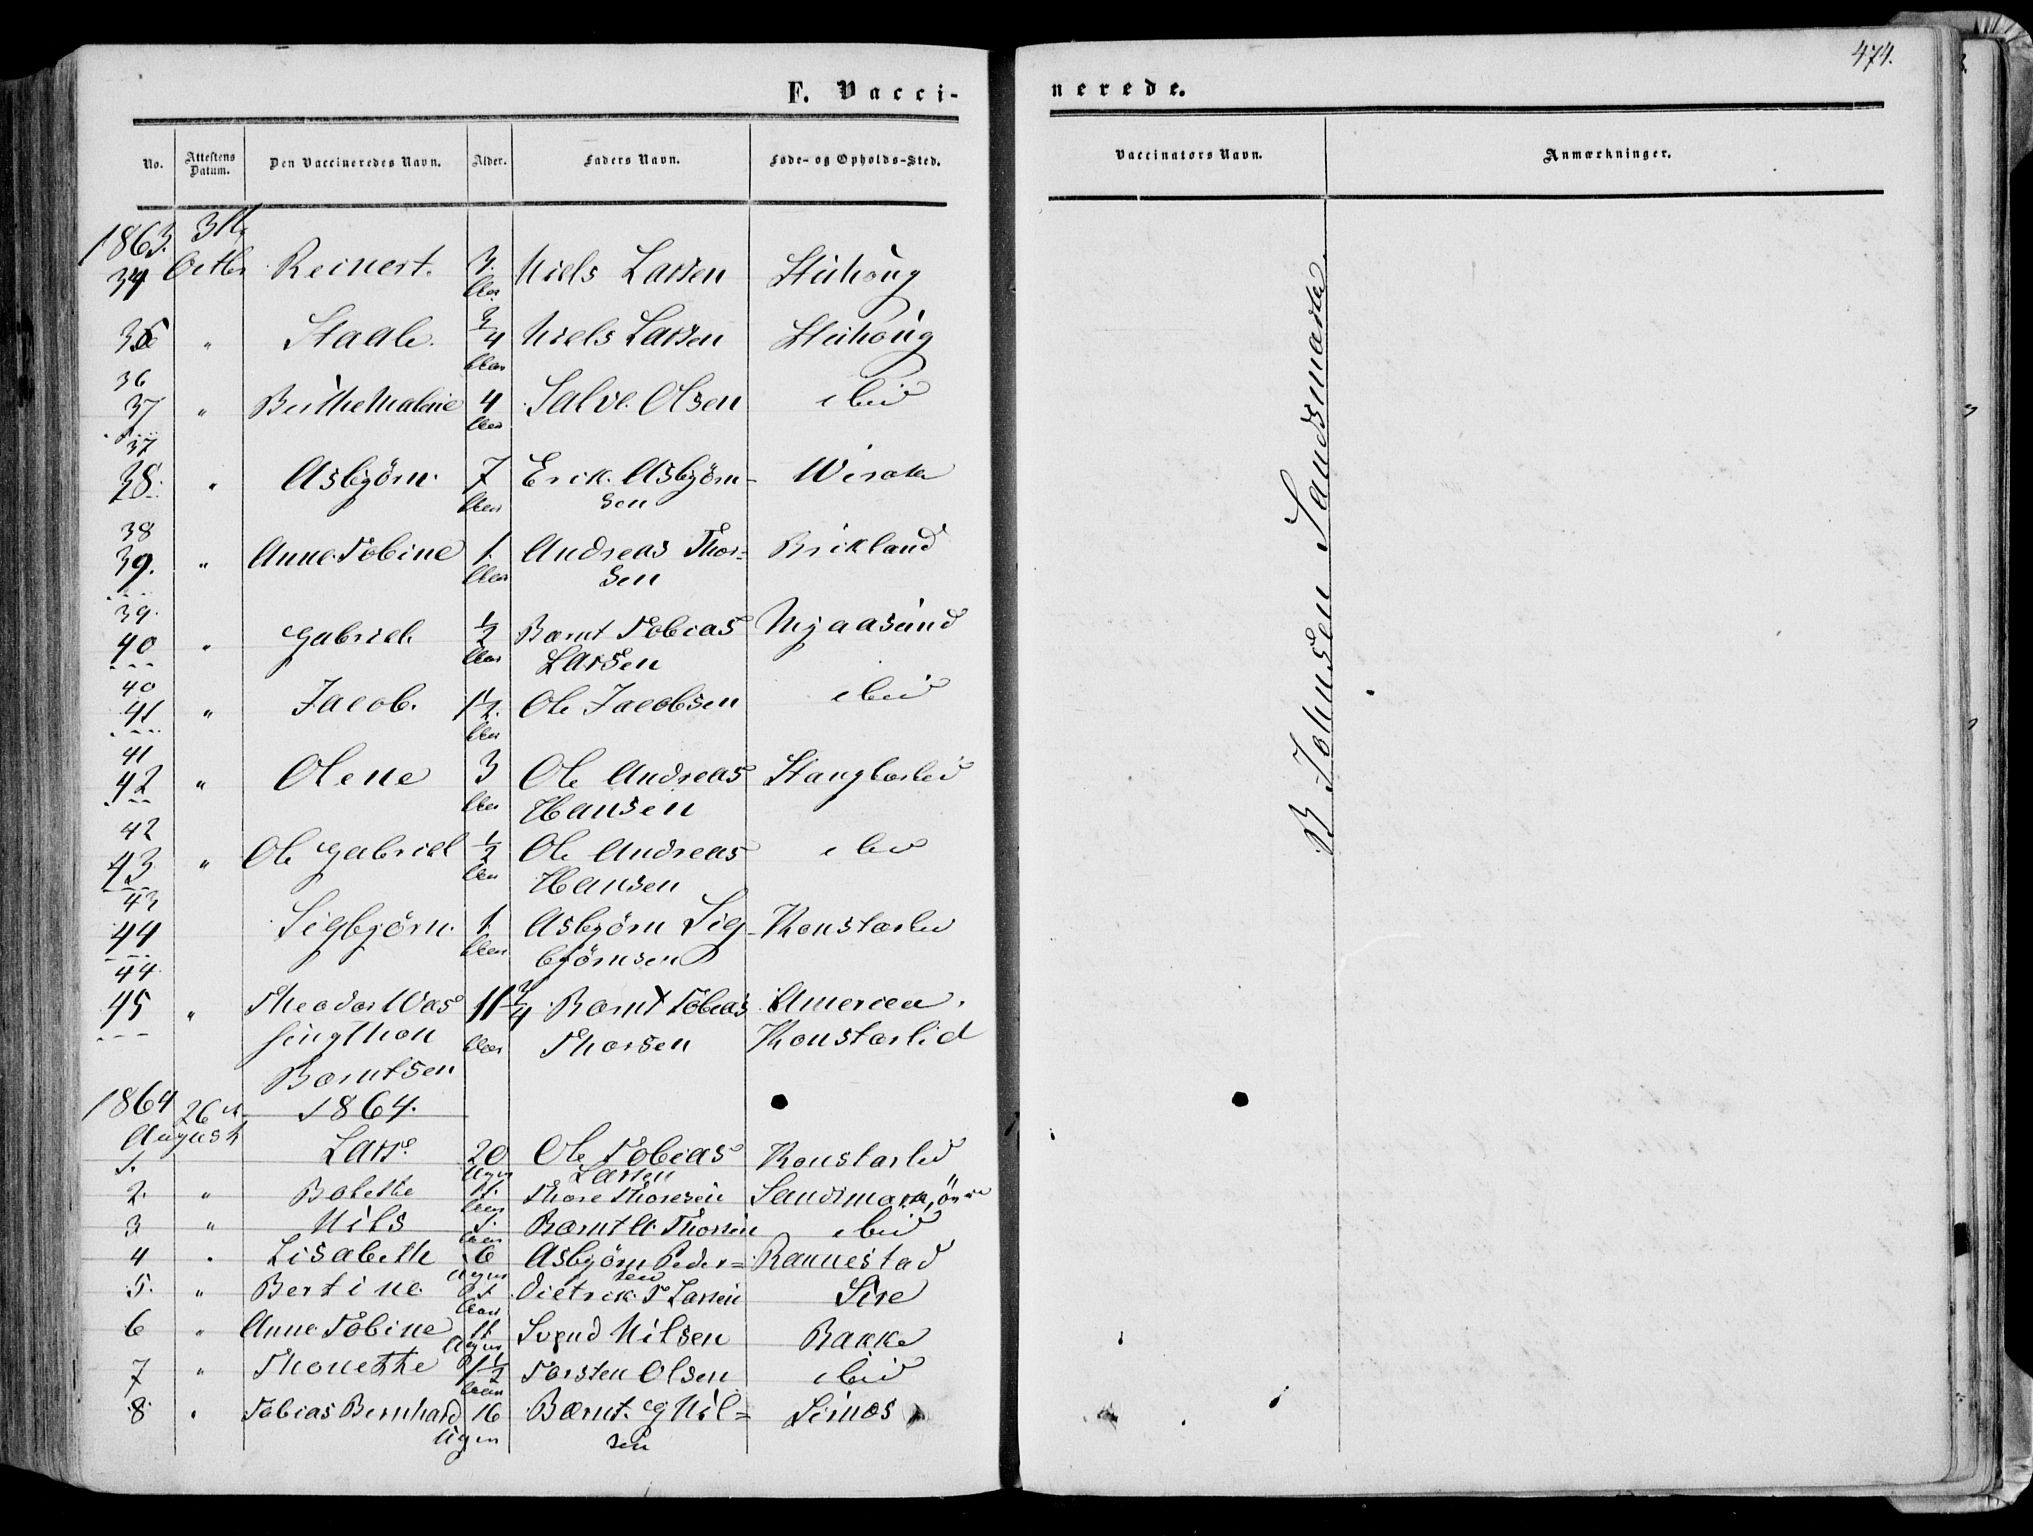 474.
F. Vacci-
nerede.
No. Attestens Datum. Den Vaccineredes Navn. Alder. Faders Navn. Føde- og Opholds-Sted.
Vaccinators Navn. Anmærkninger.
1863.
34 Octbr Reinert. 3. Niels Larsen
Aar
35 " Staale. 3/4 Niels Larsen
Aar
36
37 " Berthe Malene 4 Salve Olsen ibid
Aar
37
38. " Asbjørn. 7 Erik Asbjørn-
Aar sen
38
39. " Anne Tobine 1. Andreas Thor= Birkland
Aar sen
39.
40 " Gabriel 1/2 Bernt Tobias
Aar Larsen
40
41 " Jacob. 1 1/2. Ole Jacobsen ibid
Aar
41
42 " Olene 3 Ole Andreas
Aar Hansen
42
43 " Ole Gabriel 1/2 Ole Andreas ibid
Aar Hansen
43
44 Sigbjørn. 1 Asbjørn Sig-
Aar bjørnsen
44.
45 " Theodor Was 11 3/4 Bernt Tobias America.
hingthon Aar Thorsen
Berntsen
1864 26 1864.
August
1. Lars 20 Ole Tobias
Uger Larsen
2. " Bolethe 11. Thore Thoresen Sandsmark, öwre
Aar
3 " Nils 1. Bernt A. Thorsen ibid
Aar
4 " Lisabeth 6 Asbjørn Peder= Rannestad
Uger sen
5. " Bertine Dietrik T Larsen Sire
Aar
6 " Anne Tobine 11 Svend Nilsen Bakke
Uger
7 " Thonette 1 1/2 Torsten Olsen ibid
Aar
8 " Tobias Bernhard 16 Bernt G Nil= Sirnes
Uger sen
B Johnsen Sandsmark.